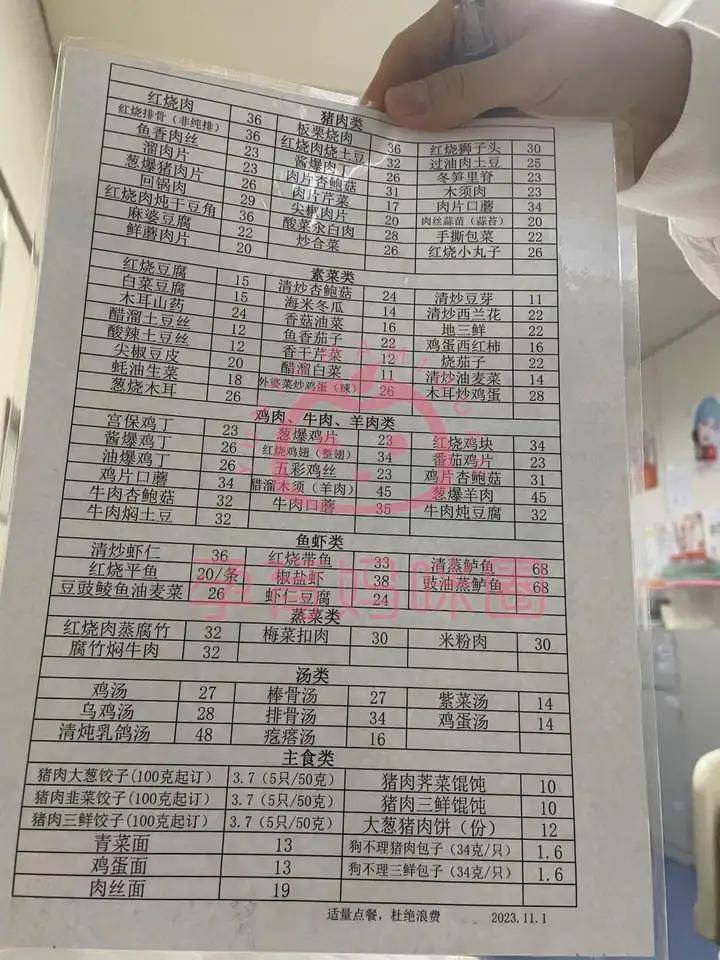 猪肉类
红烧肉 36
红烧排骨（非纯排） 36 板栗烧肉 36 红烧狮子头 30
鱼香肉丝 23 红烧肉烧土豆 32 过油肉土豆 25
溜肉片 23 酱爆肉丁 26 冬笋里脊 23
葱爆猪肉片 26 肉片杏鲍菇 31 木须肉 23
回锅肉 29 肉片芹菜 17 肉片口蘑 34
红烧肉炖干豆角 36 尖椒肉片 20 肉丝蒜苗（蒜苔） 20
麻婆豆腐 22 酸菜汆白肉 28 手撕包菜 22
鲜蘑肉片 20 炒合菜 26 红烧小丸子 26
素菜类
红烧豆腐 15
白菜豆腐 15 清炒杏鲍菇 24 清炒豆芽 11
木耳山药 24 海米冬瓜 14 清炒西兰花 22
醋溜土豆丝 12 香菇油菜 16 地三鲜 22
酸辣土豆丝 12 鱼香茄子 22 鸡蛋西红柿 16
尖椒豆皮 20 香干芹菜 12 烧茄子 22
蚝油生菜 18 醋溜白菜 11 清炒油麦菜 14
葱烧木耳 26 外婆菜炒鸡蛋（辣） 26 木耳炒鸡蛋 28
鸡肉、牛肉、羊肉类
宫保鸡丁 23 葱爆鸡片 23 红烧鸡块 34
酱爆鸡丁 26 红烧鸡翅（整翅） 34 番茄鸡片 23
油爆鸡丁 26 五彩鸡丝 23 鸡片杏鲍菇 31
鸡片口蘑 34 醋溜木须（羊肉） 45 葱爆羊肉 45
牛肉杏鲍菇 32 牛肉口蘑 35 牛肉炖豆腐 32
牛肉焖土豆 32
鱼虾类
清炒虾仁 36 红烧带鱼 33 清蒸鲈鱼 68
红烧平鱼 20/条 椒盐虾 38 豉油蒸鲈鱼 68
豆豉鲮鱼油麦菜 26 虾仁豆腐 24
孕育妈咪圈
蒸菜类
红烧肉蒸腐竹 32 梅菜扣肉 30 米粉肉 30
腐竹焖牛肉 32
汤类
鸡汤 27 棒骨汤 27 紫菜汤 14
乌鸡汤 28 排骨汤 34 鸡蛋汤 14
清炖乳鸽汤 48 疙瘩汤 16
主食类
猪肉大葱饺子(100克起订) 3.7（5只/50克） 猪肉荠菜馄饨 10
猪肉韭菜饺子(100克起订) 3.7（5只/50克） 猪肉三鲜馄饨 10
猪肉三鲜饺子(100克起订) 3.7（5只/50克） 大葱猪肉饼（份） 12
青菜面 13 狗不理猪肉包子（34克/只） 1.6
鸡蛋面 13 狗不理三鲜包子（34克/只） 1.6
肉丝面 19
适量点餐，杜绝浪费 2023.11.1